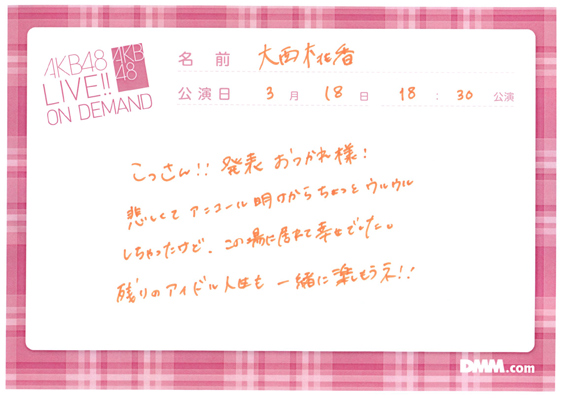 AKB48
LIVE!!
ON DEMAND
AKB
48
名前 大西桃香
公演日 3月 18日 18:30 公演
こっさん!! 発表 おつかれ様!
悲しくて アンコール明けからちょっと ウルウル
しちゃったけど、この場に居れて幸せでした。
残りのアイドル人生も 一緒に楽しもうネ!!
DMM.com